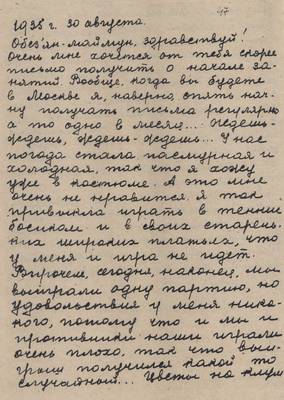 47
1935 г. 30 августа.
Обез'ян-маймун, здравствуй!
Очень мне хочется от тебя скорее
письмо получить о начале за-
нятий. Вообще, когда вы будете
в Москве я, наверно, опять нач-
ну получать письма регулярно
а то одно в месяц... Ждешь-
ждешь, ждешь-ждешь... У нас
погода стала пасмурная и
холодная, так что я хожу
уже в костюме. А это мне
очень не нравится. Я так
привыкла играть в теннис
босиком и в своих старень-
ких широких платьях, что
у меня и игра не идет.
Впрочем, сегодня, наконец, мы
выиграли одну партию, но
удовольствия у меня ника-
кого, потому что и мы и
противники наши играли
очень плохо, так что выи-
грыш получился какой то
случайный... Цветы на клум